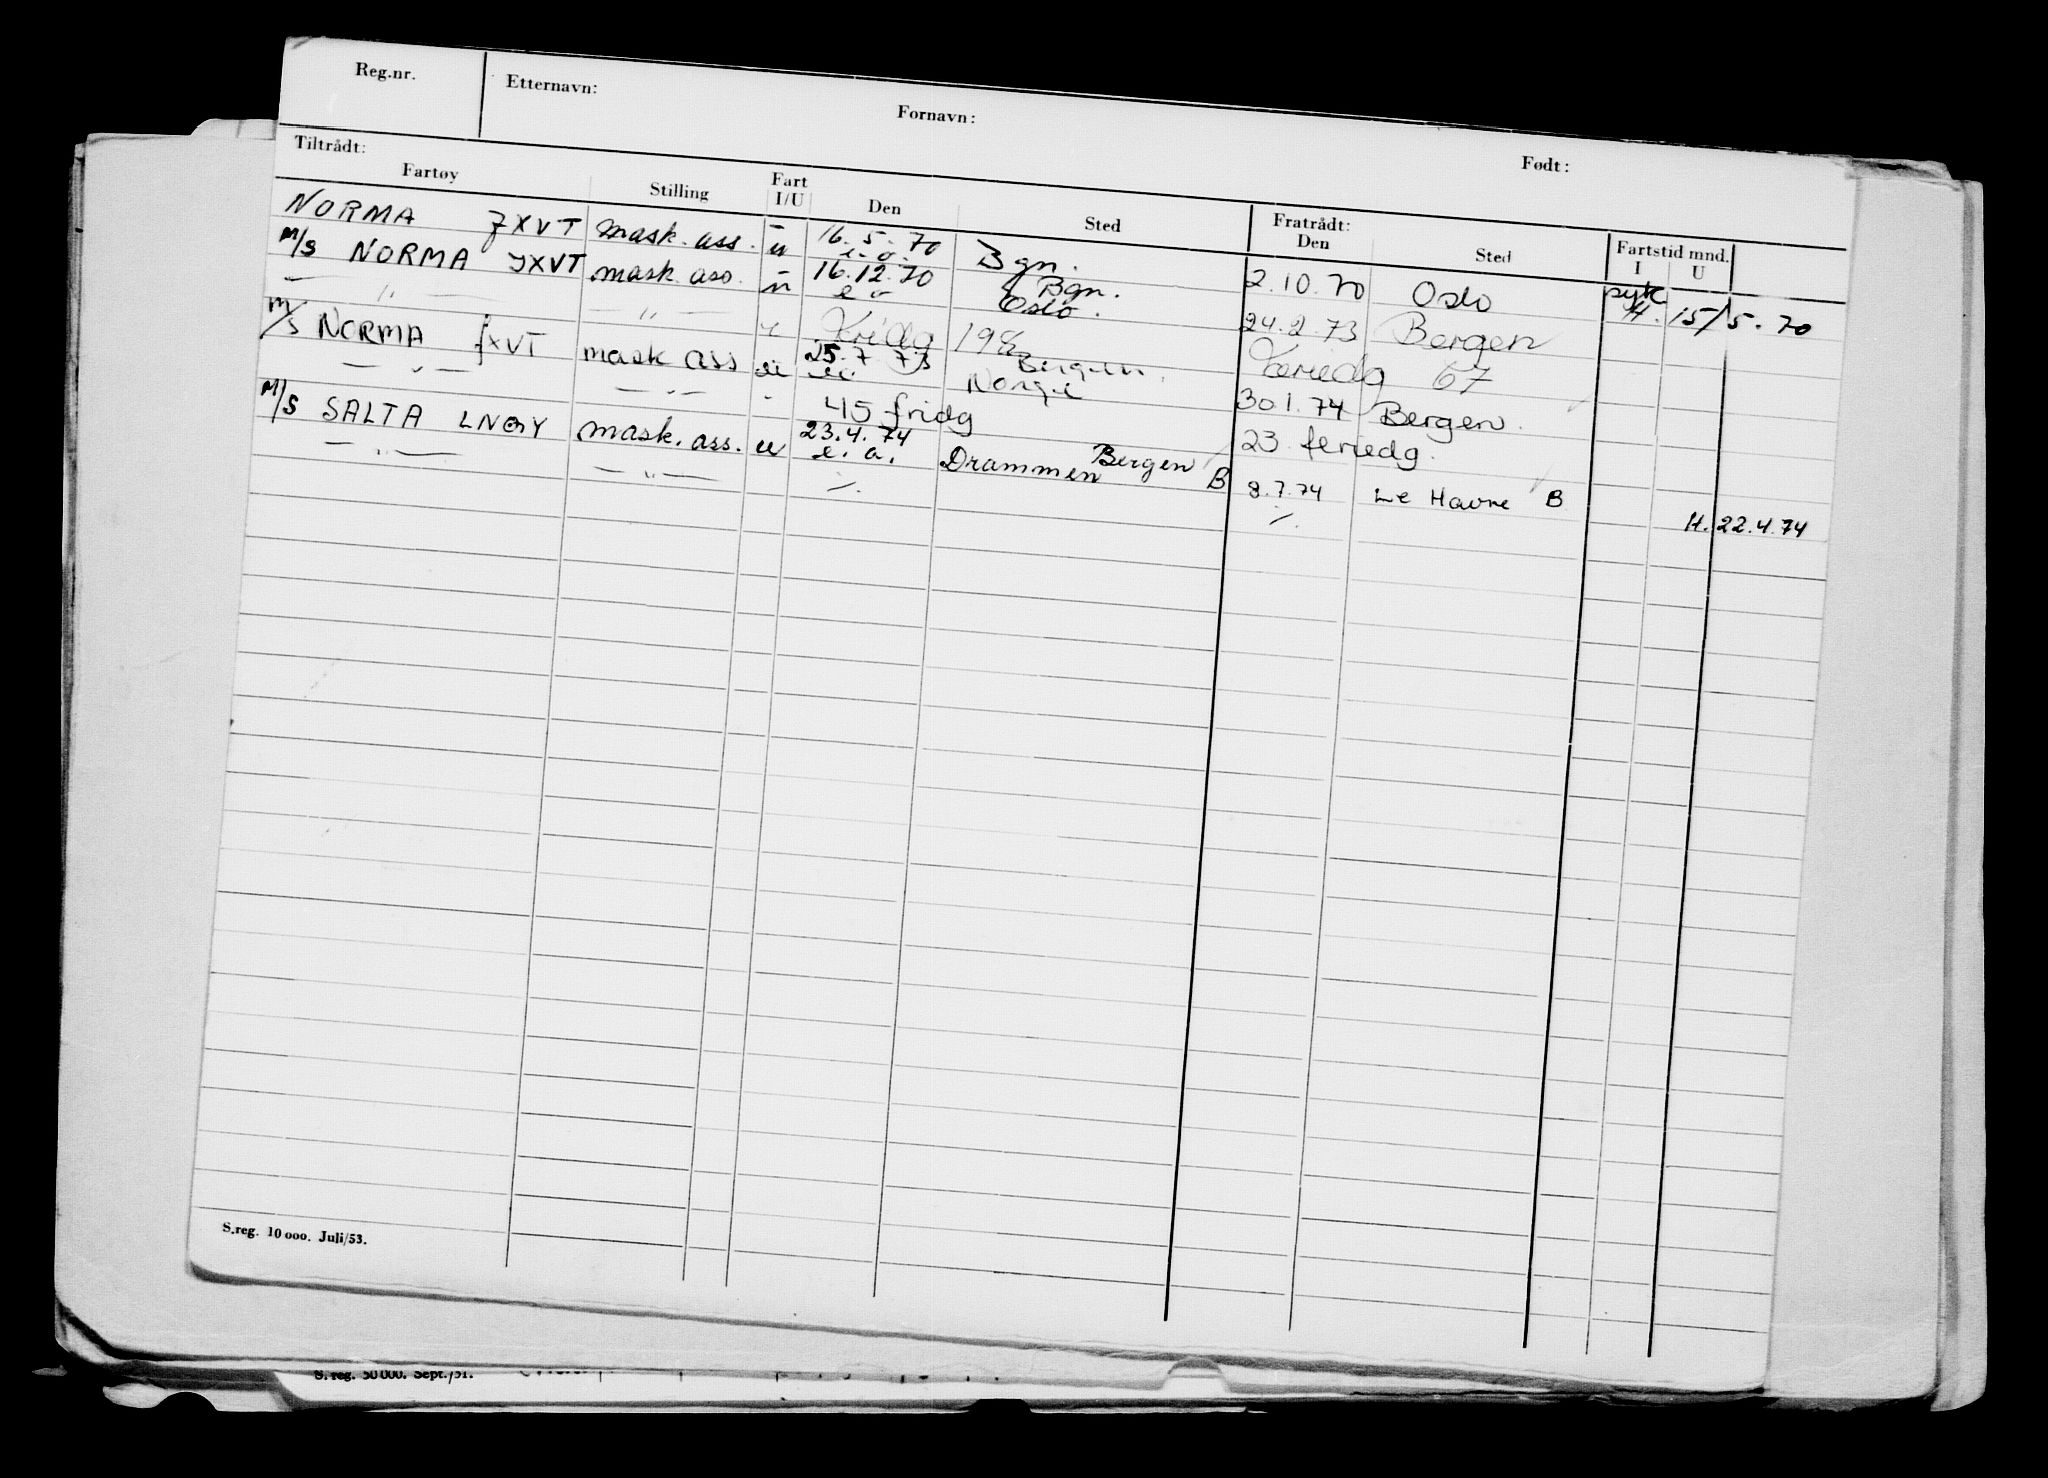 Reg.nr. Etternavn: Fornavn: Født:
Tiltrådt: Fratrådt:
Fartøy Stilling Fart I/U Den Sted Den Sted Fartstid mnd. I U
NORMA JXVT mask. ass. u 16.5.70 Bgn. 2.10.70 Oslo syk H. 15/5.70
M/S NORMA JXVT mask. ass. u 16.12.70 Bgn. 24.2.73 Bergen
— " — — " — e o Oslo. Feriedg 67
Fridg 198
M/S NORMA JXVT mask ass u 25.7 73 Bergen 30.1.74 Bergen.
— " — — " — Norge 23 feriedg.
45 fridg
M/S SALTA LNGY mask. ass. u 23.4.74 Bergen 8.7.74 Le Havre B H. 22.4.74
— " — — " — e. o. Drammen B
S.reg. 10 000. Juli/53.
S. reg. 50 000. Sept./51.